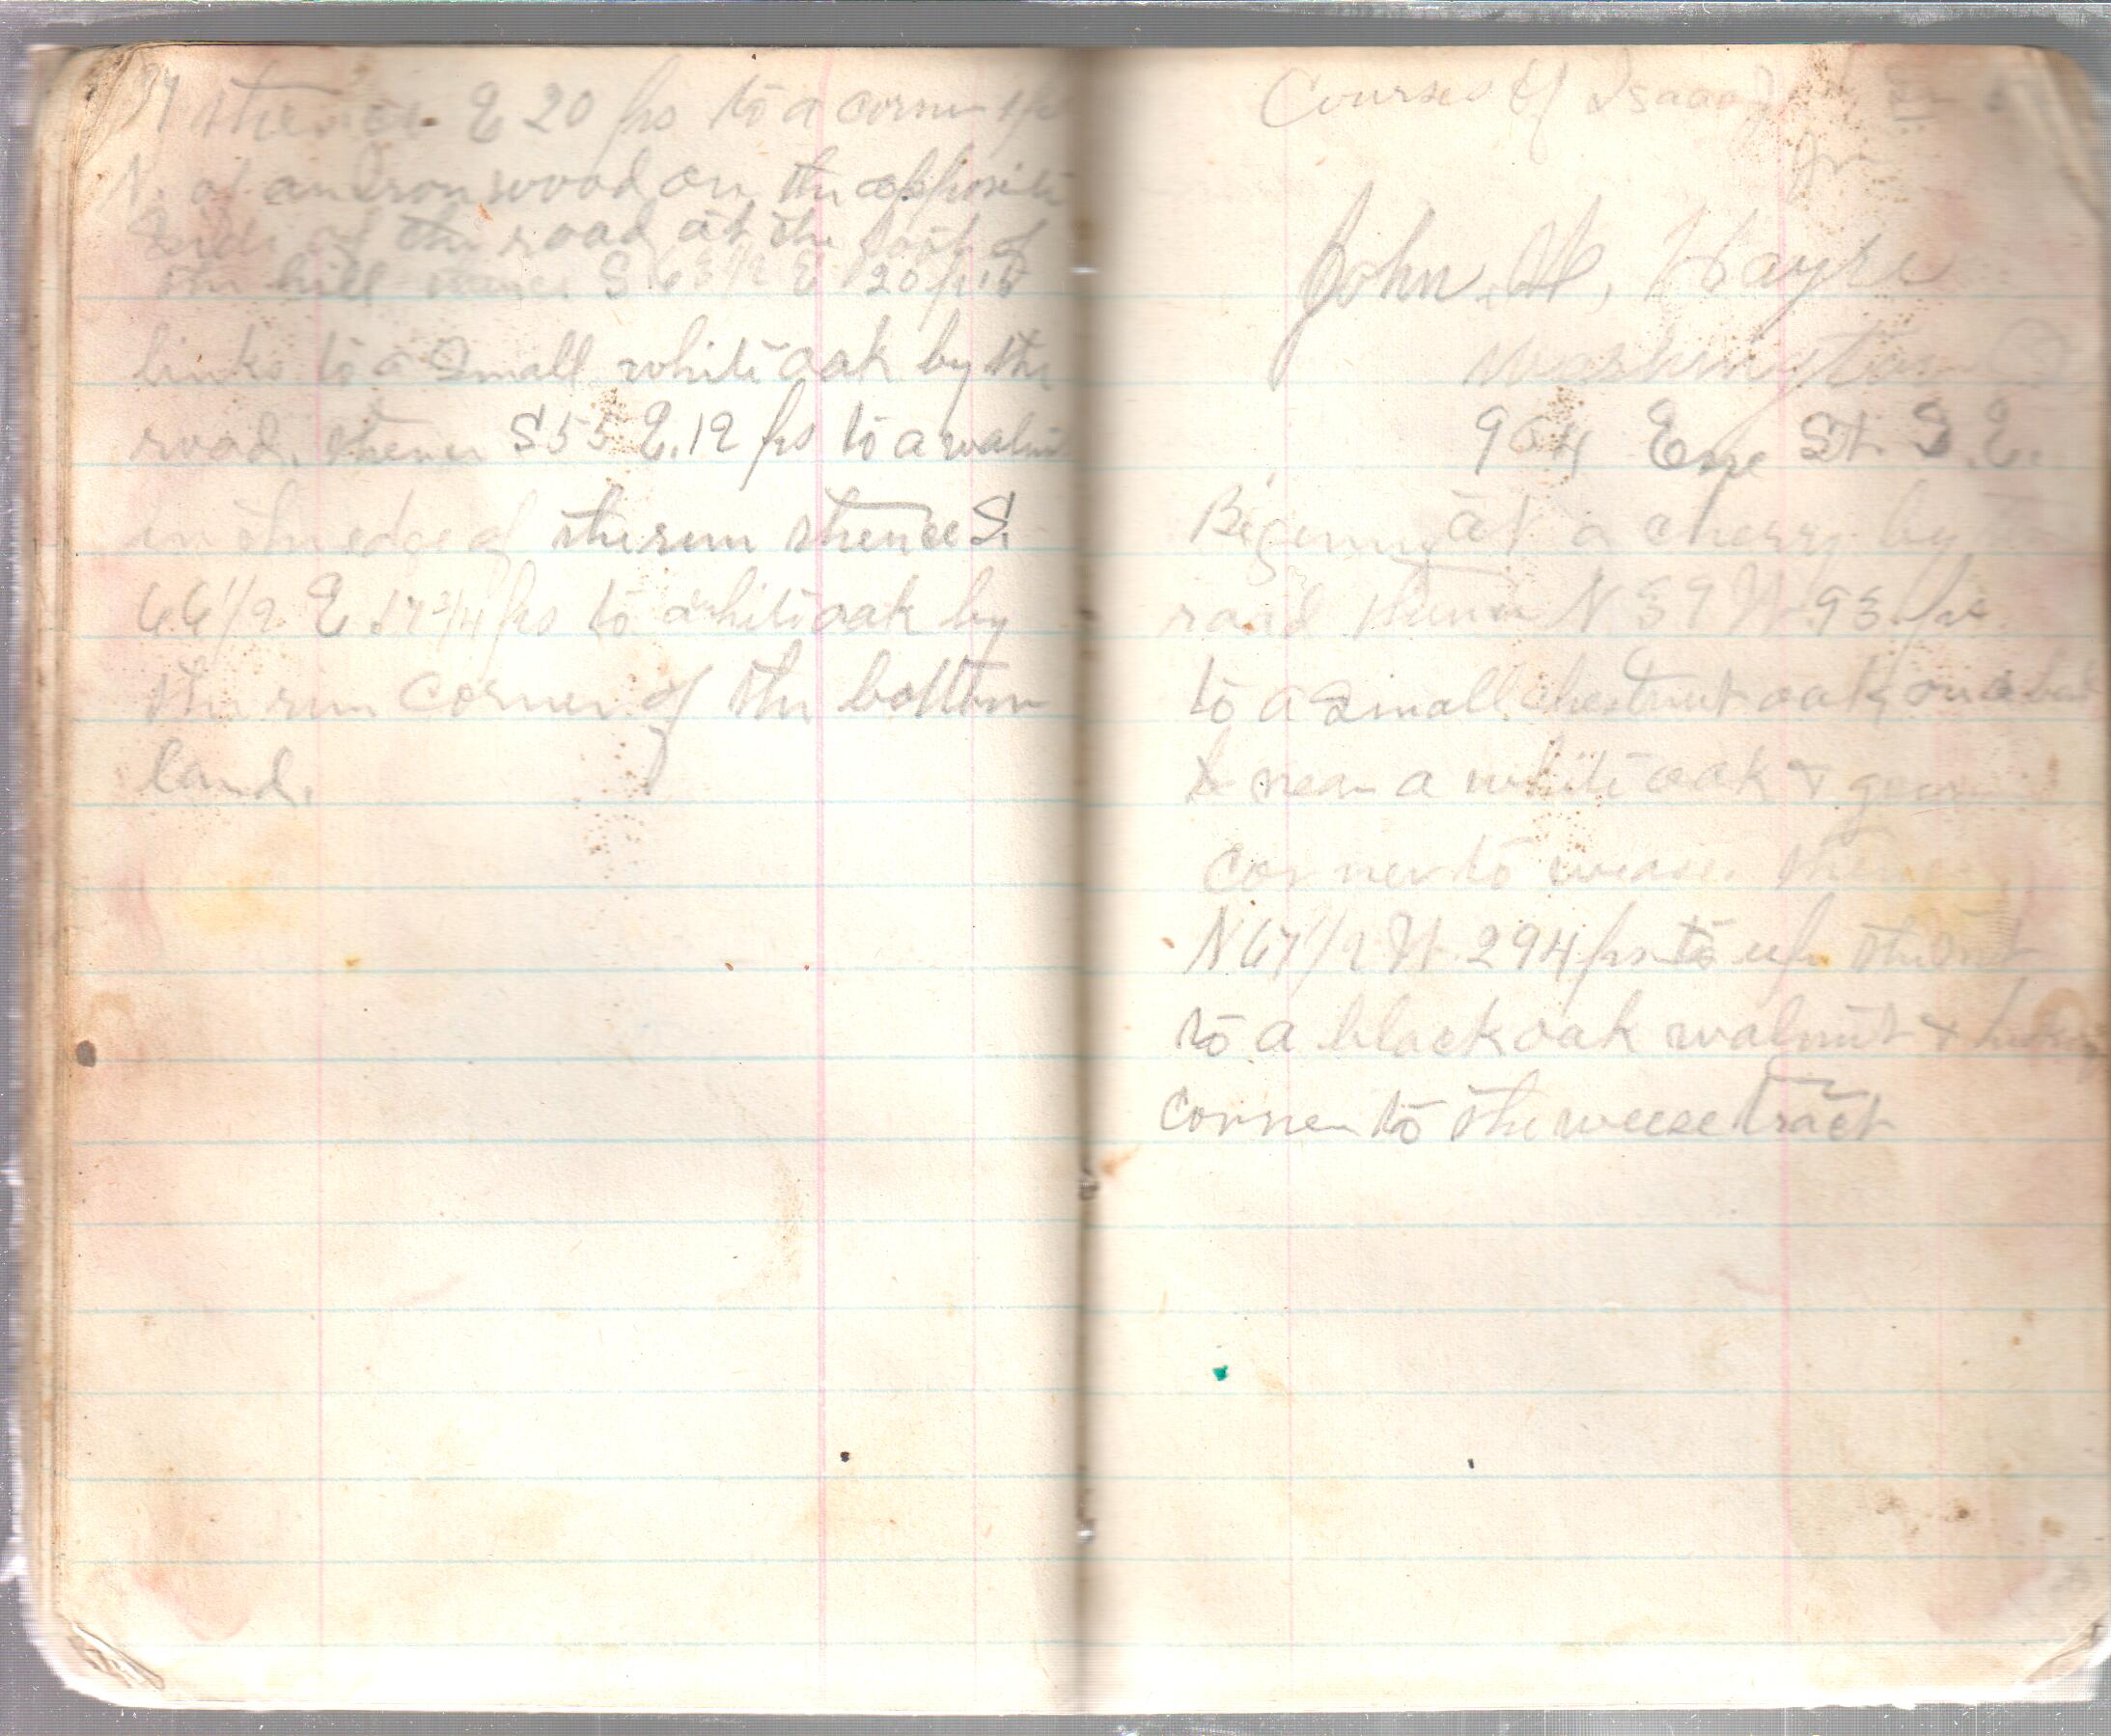 thence E 20 prs to a corner
N. of an Ironwood on the opposite
Side of the road at the foot of
the hill thence S 63 1/2 E 20 prs
links to a Small white oak by the
road. thence S 55 E. 12 prs to a walnut
in the edge of the run thence S.
66 1/2 E 17 3/4 prs to a white oak by
the run corner of the bottom
land.
Courses of Isaac
Jr
John W. Hayse
Washington
904 Eye St. S.E.
Begining at a cherry by
road thence N 39 W 93 prs
to a Small chestnut oak on a
& near a white oak &
corner to
N 67 1/2 W 294 prs to up the
to a black oak walnut &
corner to the weese tract